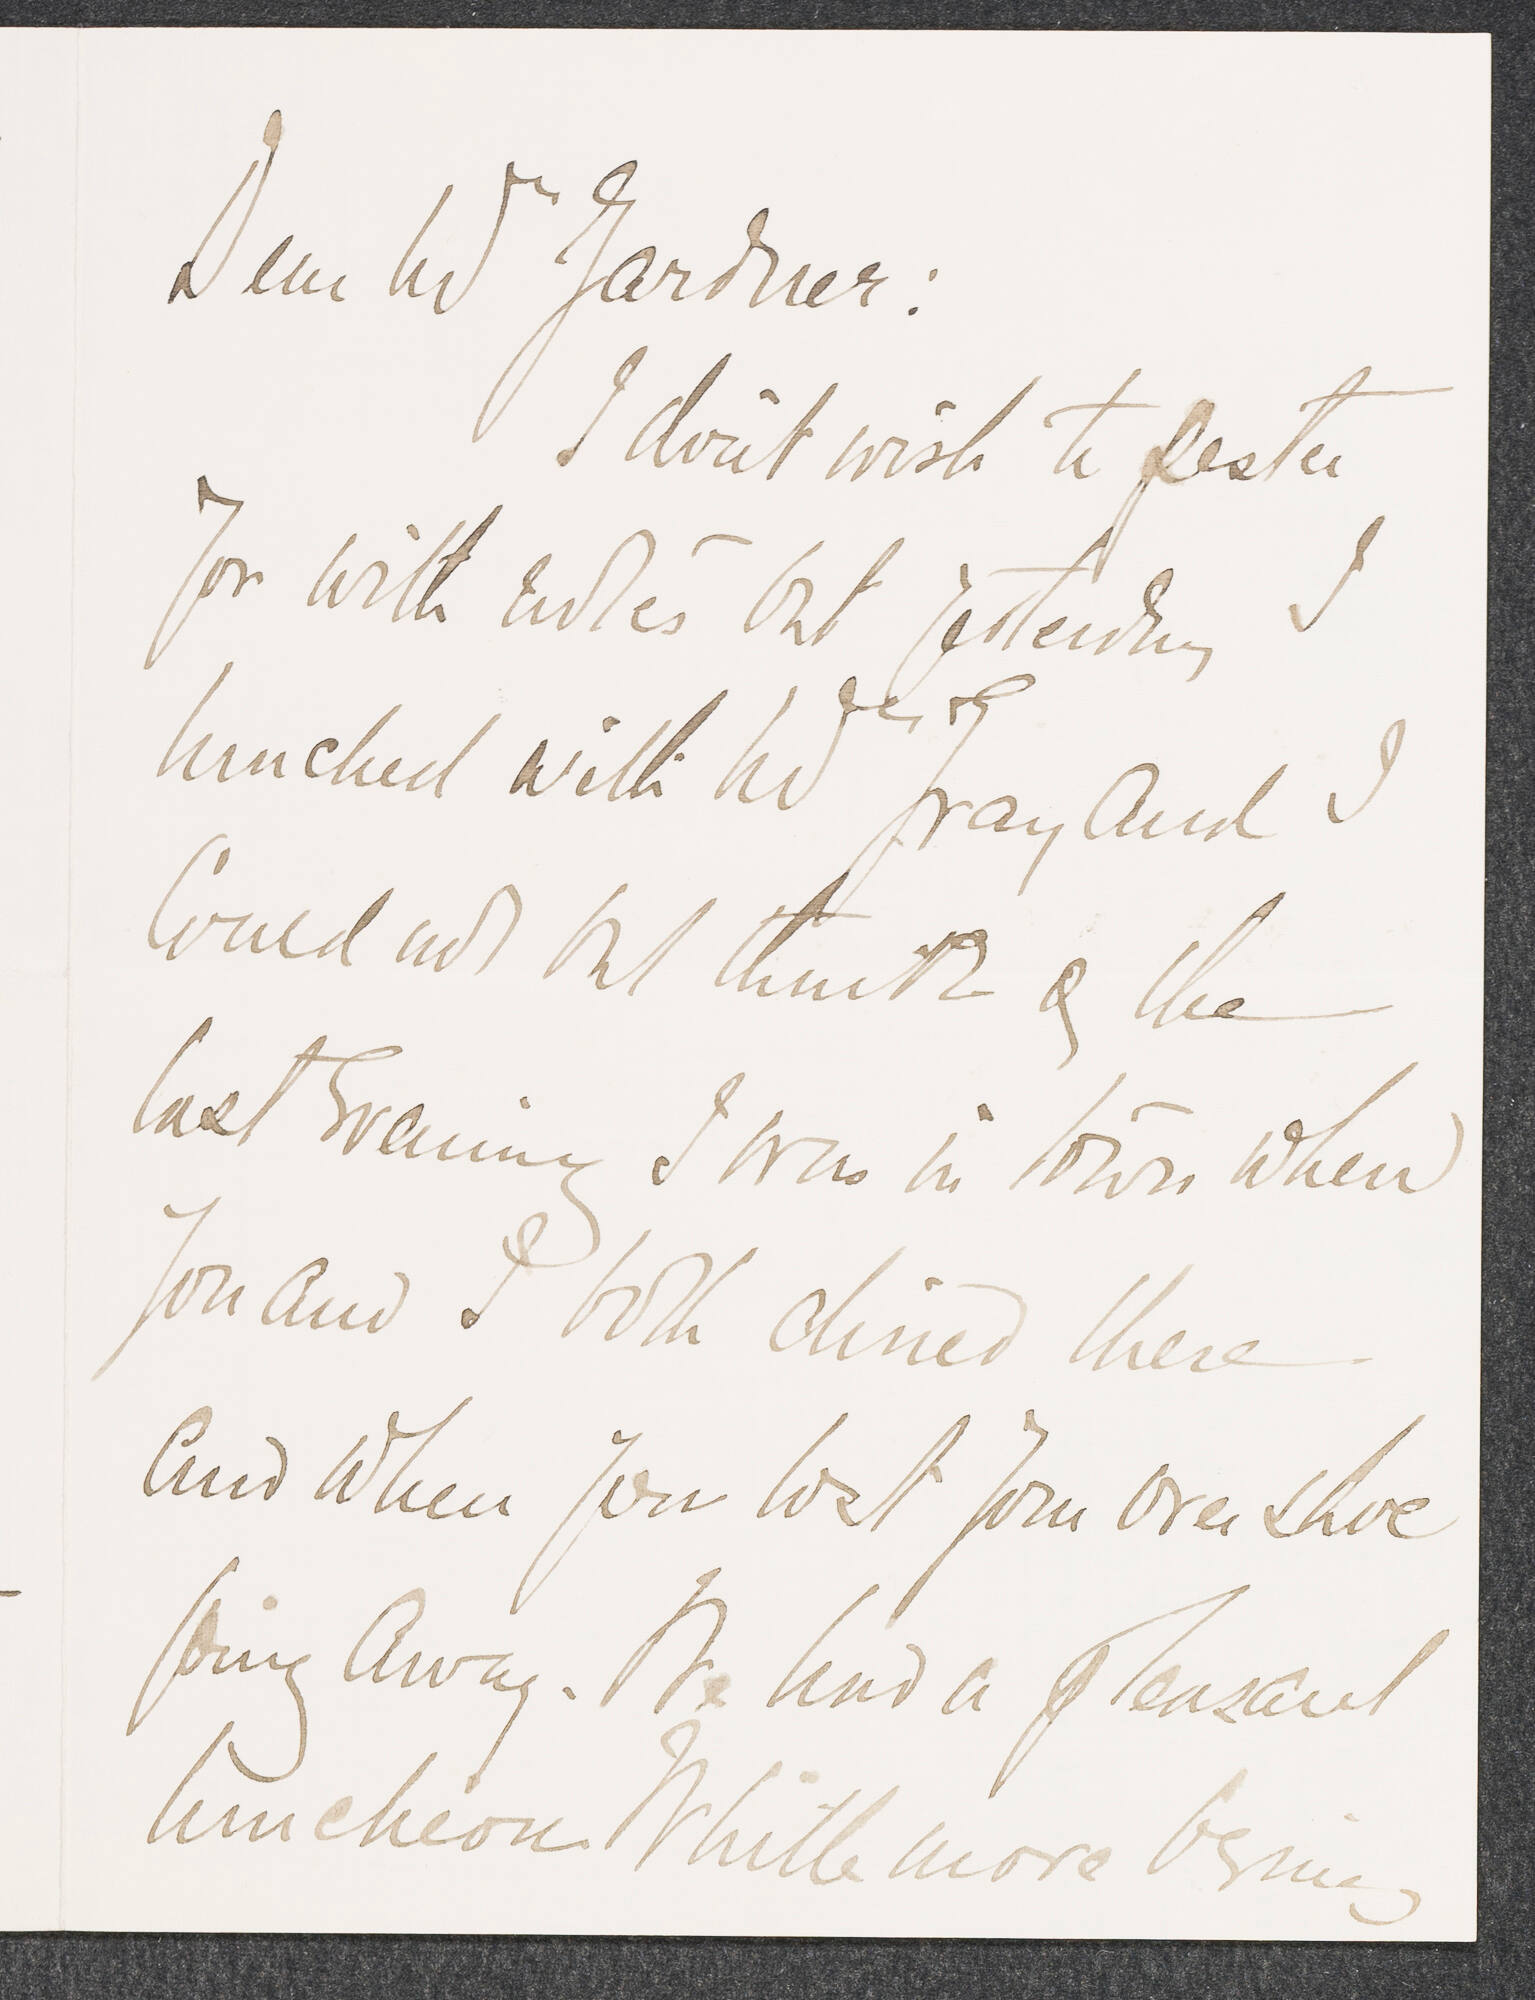 Dear Mrs Gardner:
I don't wish to pester
you with notes but yesterday I
lunched with Mrs Gray and I
Could not but think of the
last Evening I was in town when
you and I both dined there
And when you lost your over shoe
going Away. We had a pleasant
luncheon Whittemore being